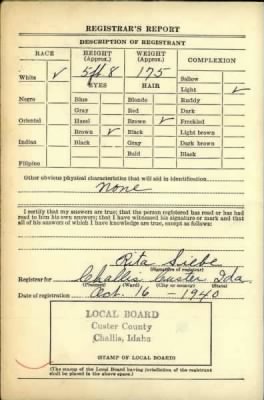 REGISTRAR'S REPORT
DESCRIPTION OF REGISTRANT
RACE HEIGHT (Approx.) WEIGHT (Approx.) COMPLEXION
5 ft. 8 175 Sallow
White ✓ EYES HAIR Light ✓
Negro Blue Blonde Ruddy
Gray Red Dark
Oriental Hazel Brown ✓ Freckled
Brown ✓ Black Light brown
Indian Black Gray Dark brown
Bald Black
Filipino
Other obvious physical characteristics that will aid in identification
None
I certify that my answers are true; that the person registered has read or has had
read to him his own answers; that I have witnessed his signature or mark and that
all of his answers of which I have knowledge are true, except as follows:
Rita Siebe
(Signature of registrar)
Registrar for Challis Custer Ida.
(Precinct) (Ward) (City or county) (State)
Date of registration Oct. 16 - 1940
LOCAL BOARD
Custer County
Challis, Idaho
(STAMP OF LOCAL BOARD)
(The stamp of the Local Board having jurisdiction of the registrant
shall be placed in the above space.)